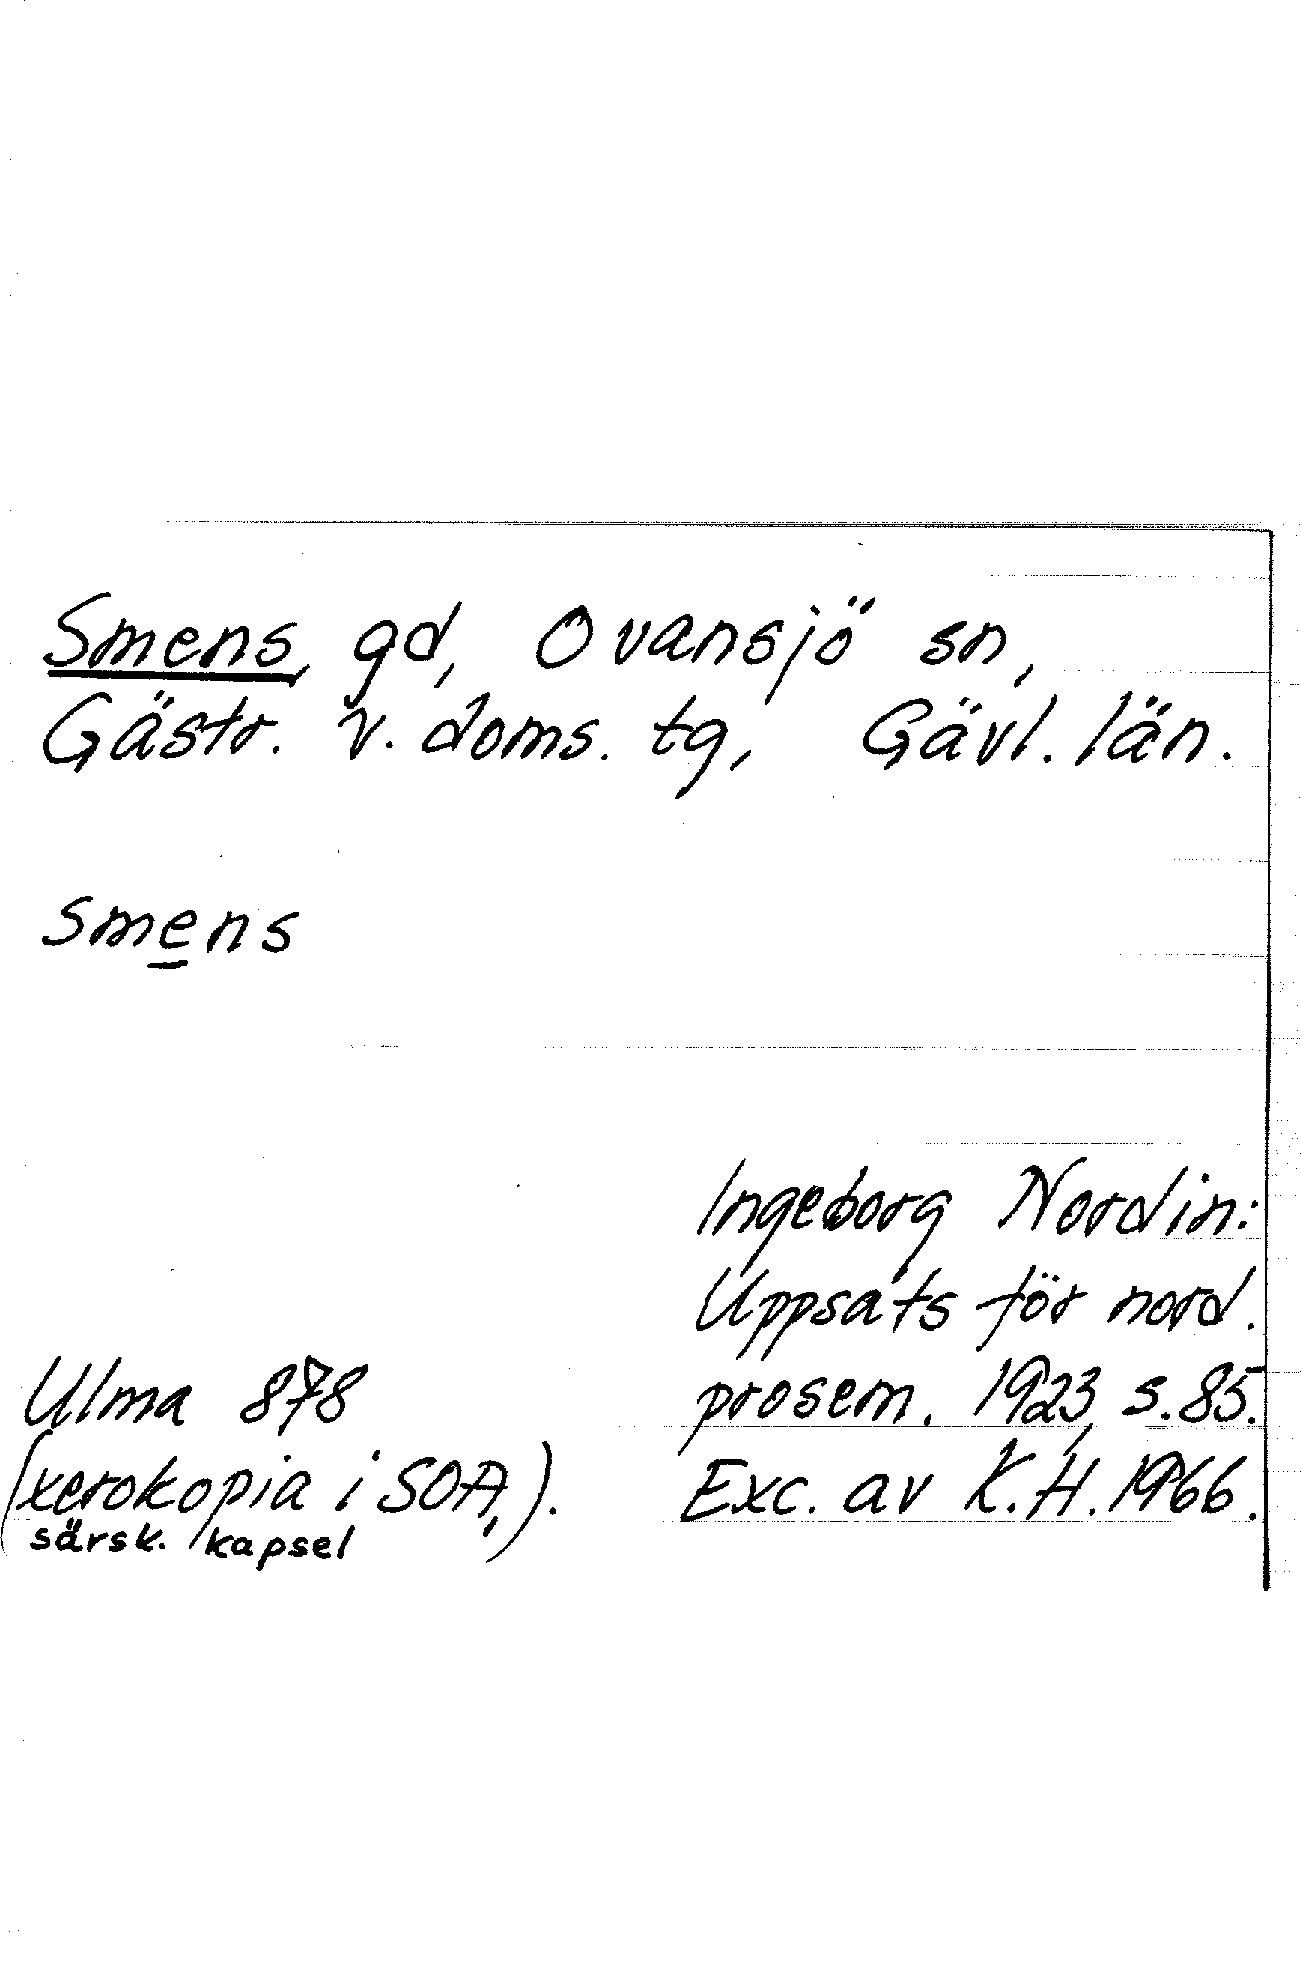 Smens, gd, Ovansjö sn,
Gästr. v. doms. tg, Gävl. län.
smens
Ingeborg Nordin:
Uppsats för nord.
prosem. 1923, s. 85.
Exc. av K.H. 1966.
Ulma 878
(xerokopia i SOA,).
särsk. kapsel